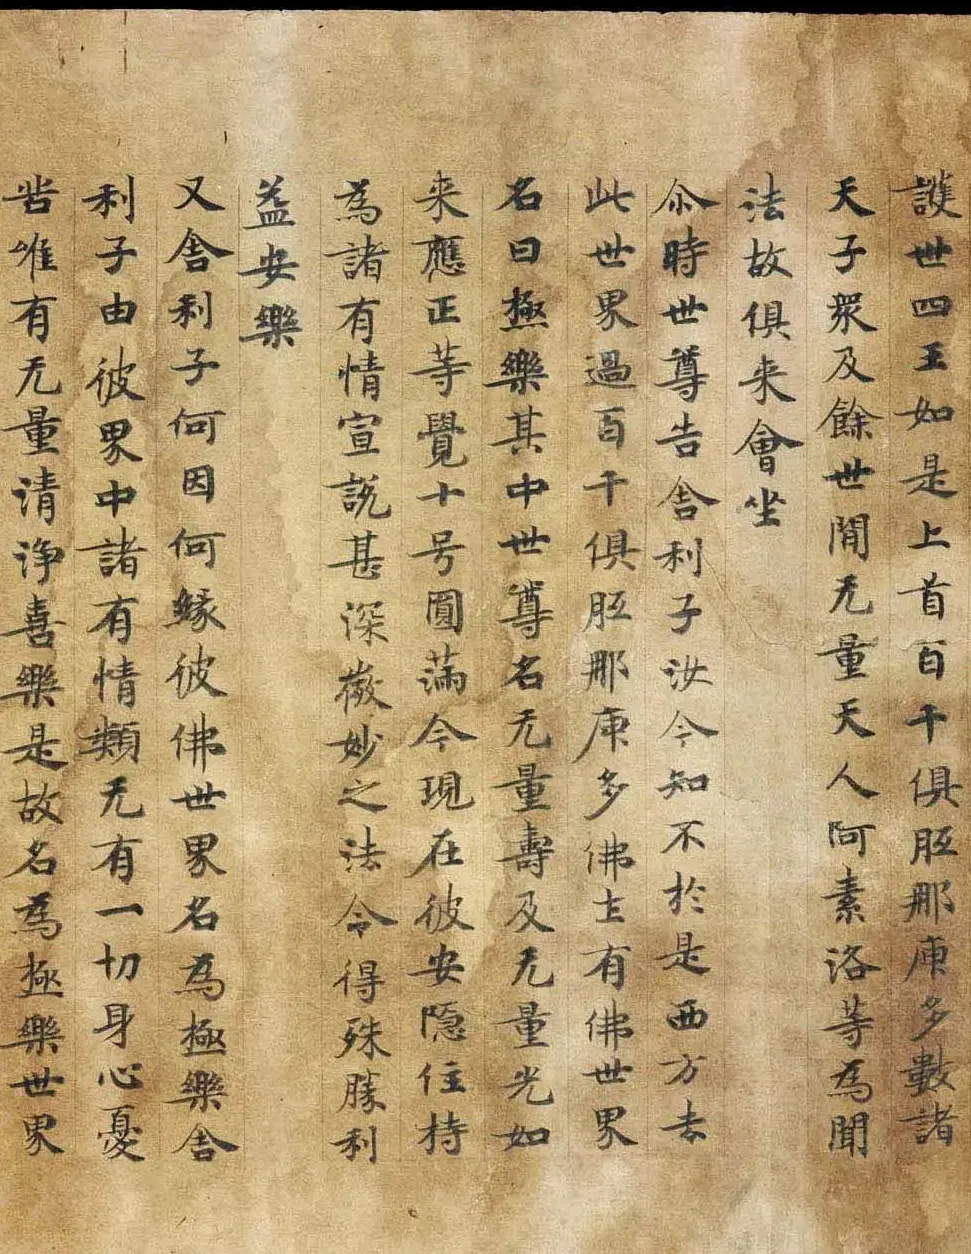 護世四王如是上首百千俱胝那庾多數諸
天子衆及餘世間无量天人阿素洛等為聞
法故俱来會坐
尒時世尊告舎利子汝今知不於是西方去
此世界過百千俱胝那庾多佛圡有佛世界
名曰極樂其中世尊名无量壽及无量光如
来應正等覺十号圓滿今現在彼安隐住持
為諸有情宣說甚深微妙之法令得殊勝利
益安樂
又舎利子何因何緣彼佛世界名為極樂舎
利子由彼界中諸有情類无有一切身心憂
苦唯有无量清淨喜樂是故名為極樂世界